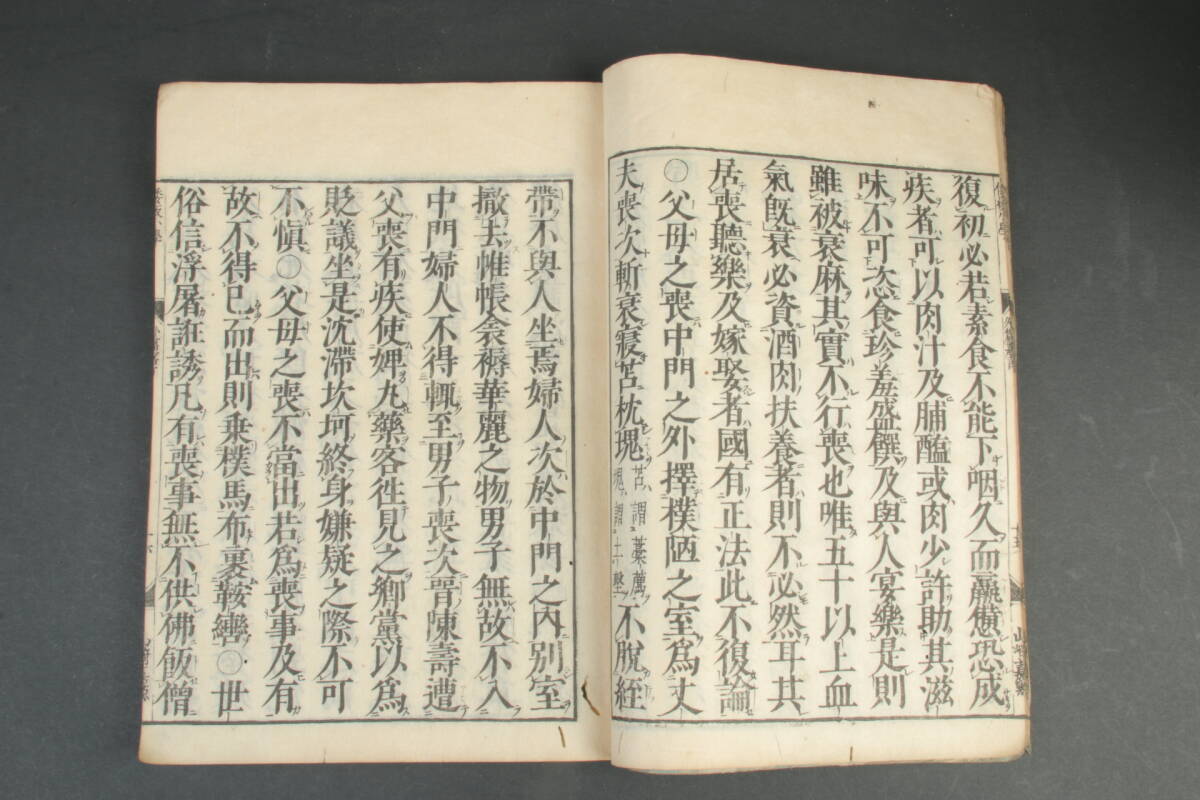 復初必若素食不能下咽久而羸憊恐成
疾者可以肉汁及脯醢或肉少許助其滋
味不可恣食珍羞盛饌及與人宴樂是則
雖被衰麻其實不行喪也唯五十以上血
氣既衰必資酒肉扶養者則不必然耳其
居喪聽樂及嫁娶者國有正法此不復論
○父母之喪中門之外擇樸陋之室爲丈
夫喪次斬衰寢苫枕塊苫謂藁薦塊謂土墼不脫絰
帶不與人坐焉婦人次於中門之內別室
撤去帷帳衾褥華麗之物男子無故不入
中門婦人不得輒至男子喪次晉陳壽遭
父喪有疾使婢丸藥客徃見之鄉黨以爲
貶議坐是沈滯坎坷終身嫌疑之際不可
不愼○父母之喪不當出若爲喪事及有
故不得已而出則乗樸馬布裹鞍轡○世
俗信浮屠誑誘凡有喪事無不供佛飯僧